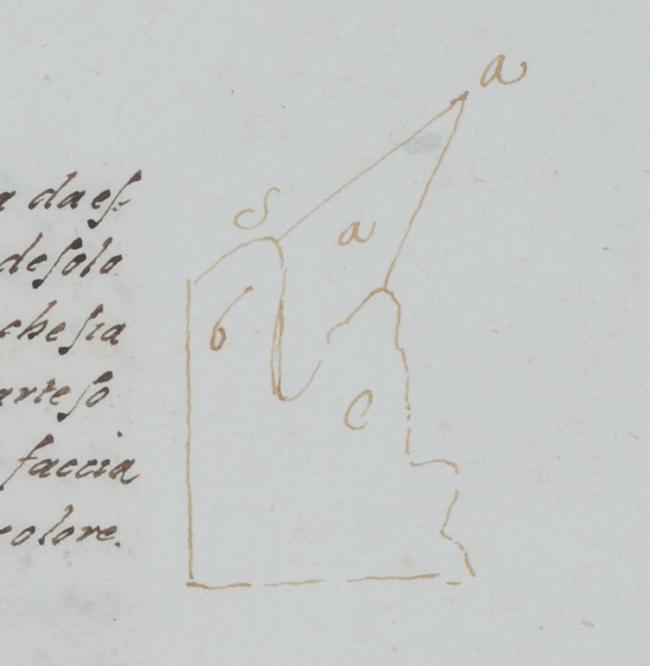 a da eſ-
de ſolo
che ſia
arte ſo
faccia
colore.
a
S
a
b
c